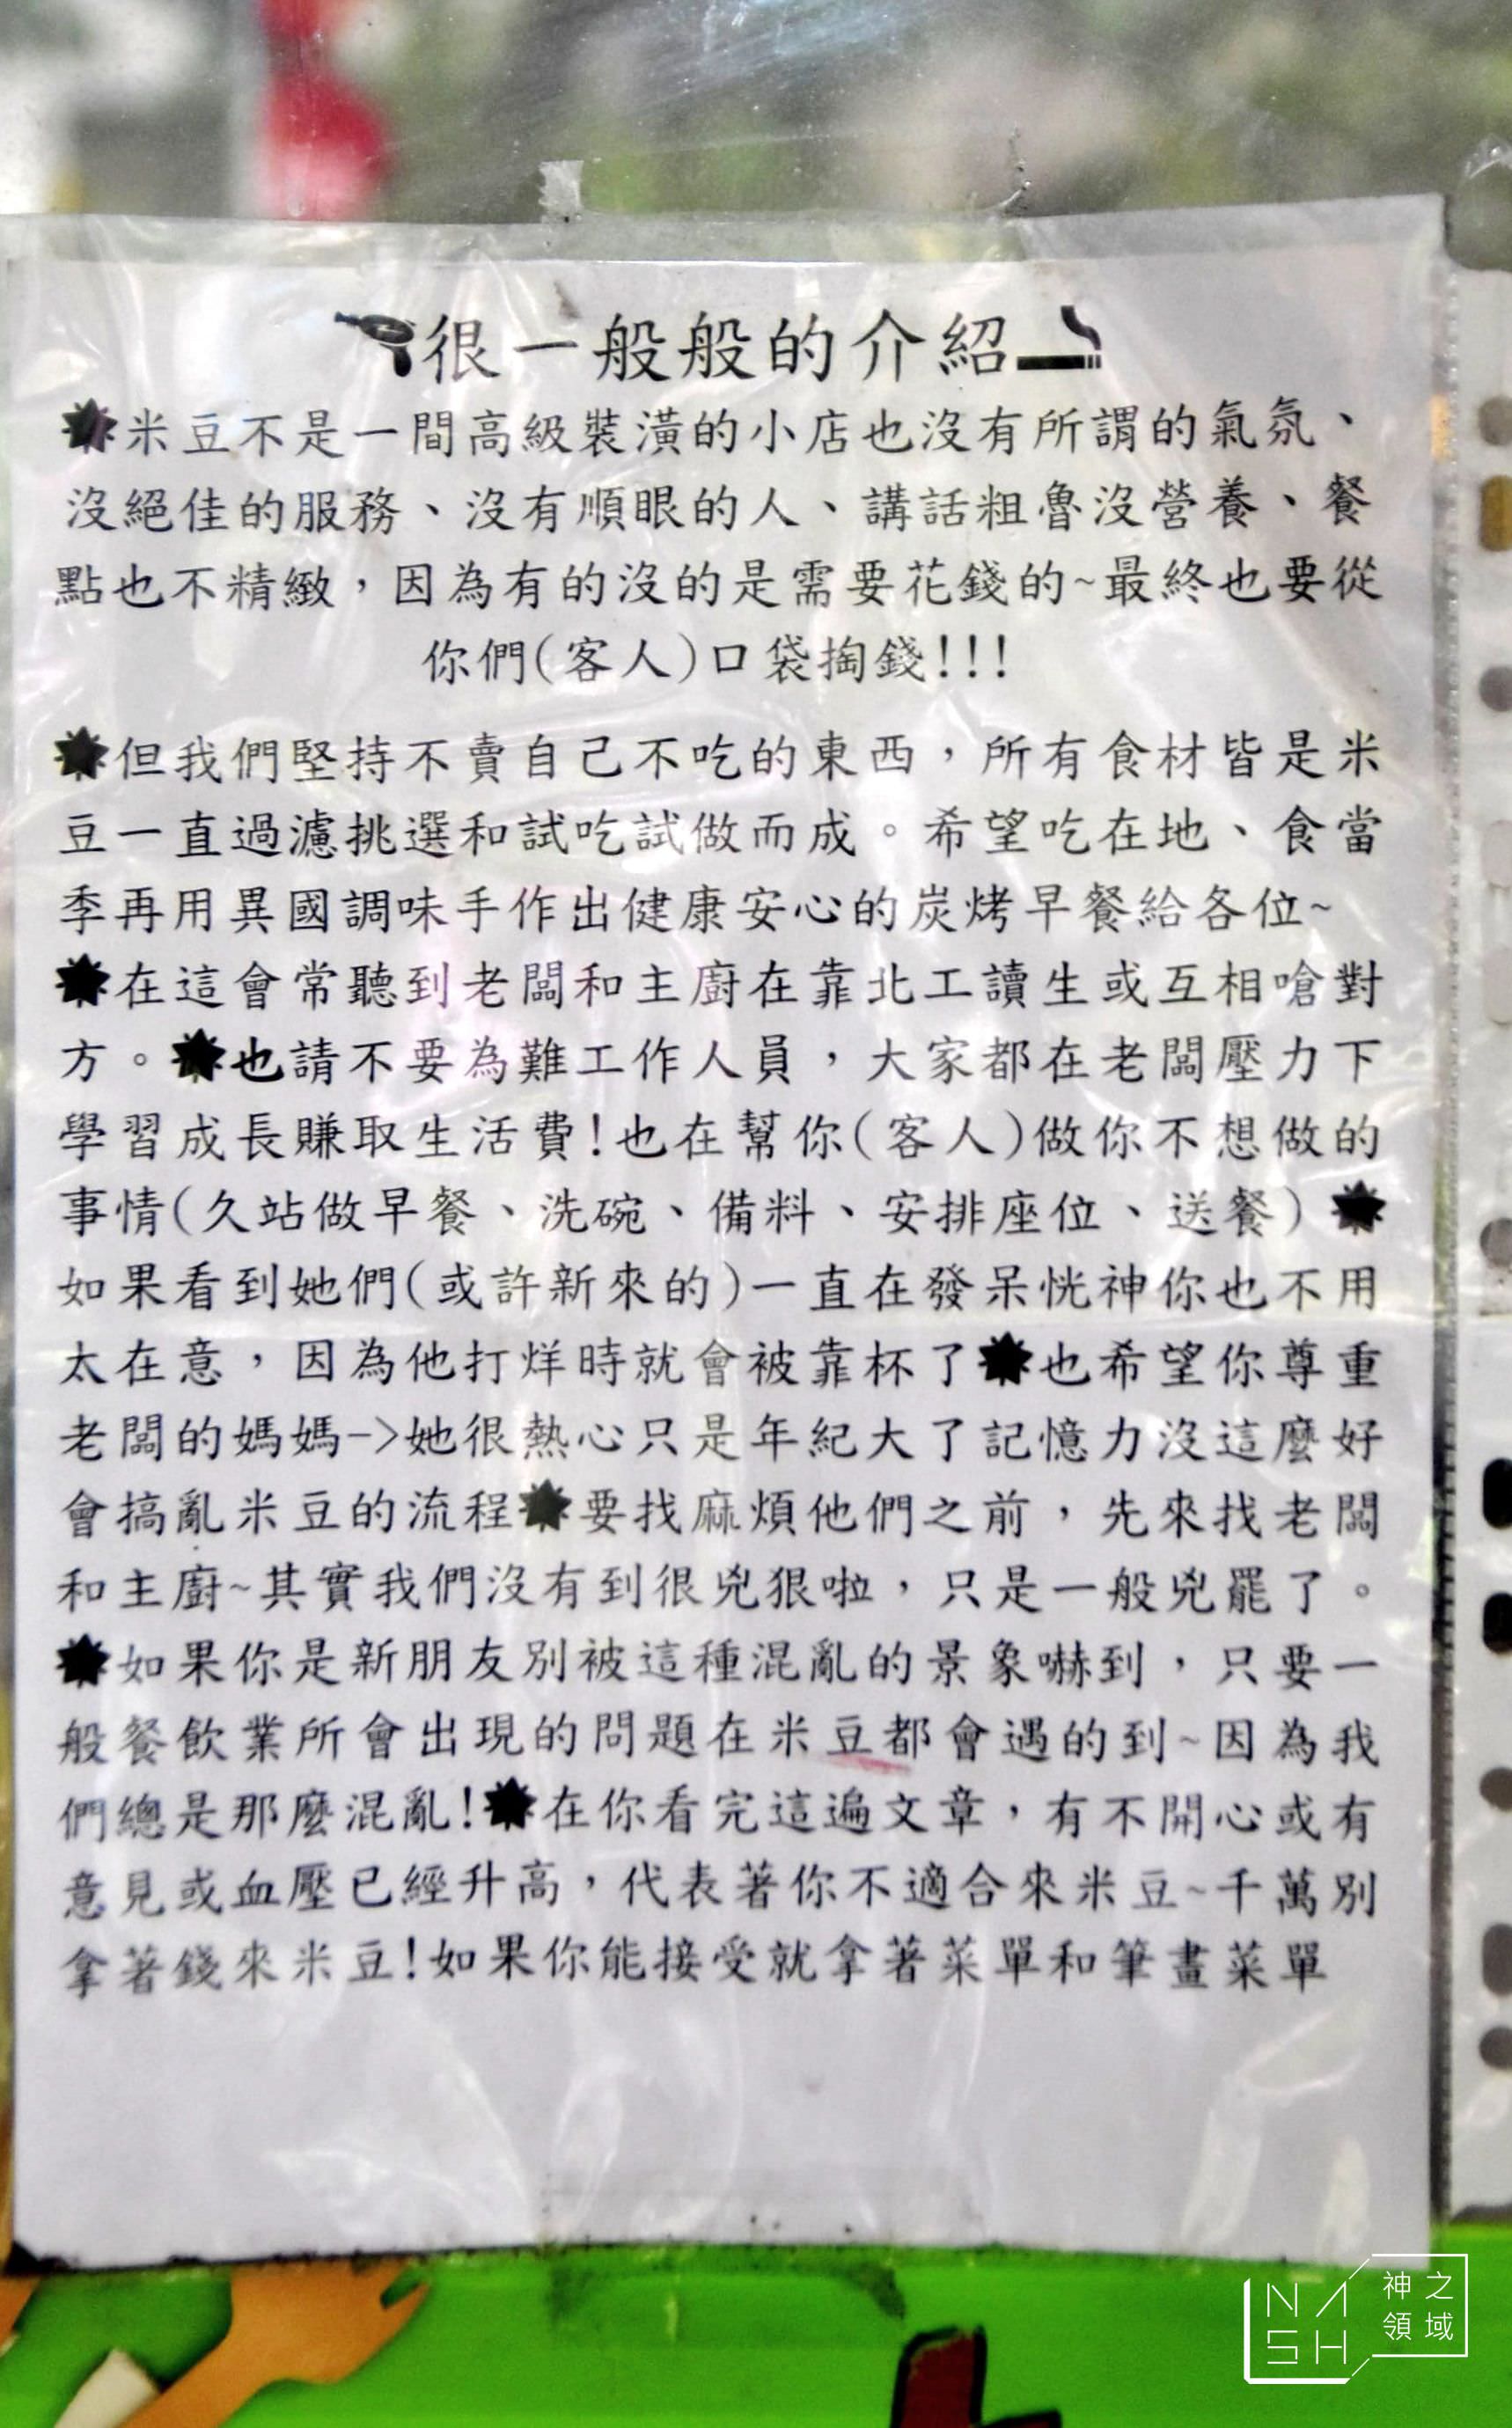 很一般般的介紹
米豆不是一間高級裝潢的小店也沒有所謂的氣氛、
沒絕佳的服務、沒有順眼的人、講話粗魯沒營養、餐
點也不精緻，因為有的沒的是需要花錢的~最終也要從
你們(客人)口袋掏錢!!!
但我們堅持不賣自己不吃的東西，所有食材皆是米
豆一直過濾挑選和試吃試做而成。希望吃在地、食當
季再用異國調味手作出健康安心的炭烤早餐給各位~
在這會常聽到老闆和主廚在靠北工讀生或互相嗆對
方。也請不要為難工作人員，大家都在老闆壓力下
學習成長賺取生活費!也在幫你(客人)做你不想做的
事情(久站做早餐、洗碗、備料、安排座位、送餐)
如果看到她們(或許新來的)一直在發呆恍神你也不用
太在意，因為他打烊時就會被靠杯了也希望你尊重
老闆的媽媽->她很熱心只是年紀大了記憶力沒這麼好
會搞亂米豆的流程要找麻煩他們之前，先來找老闆
和主廚~其實我們沒有到很兇狠啦，只是一般兇罷了。
如果你是新朋友別被這種混亂的景象嚇到，只要一
般餐飲業所會出現的問題在米豆都會遇的到~因為我
們總是那麼混亂!在你看完這遍文章，有不開心或有
意見或血壓已經升高，代表著你不適合來米豆~千萬別
拿著錢來米豆!如果你能接受就拿著菜單和筆畫菜單
NASH
神之
領域